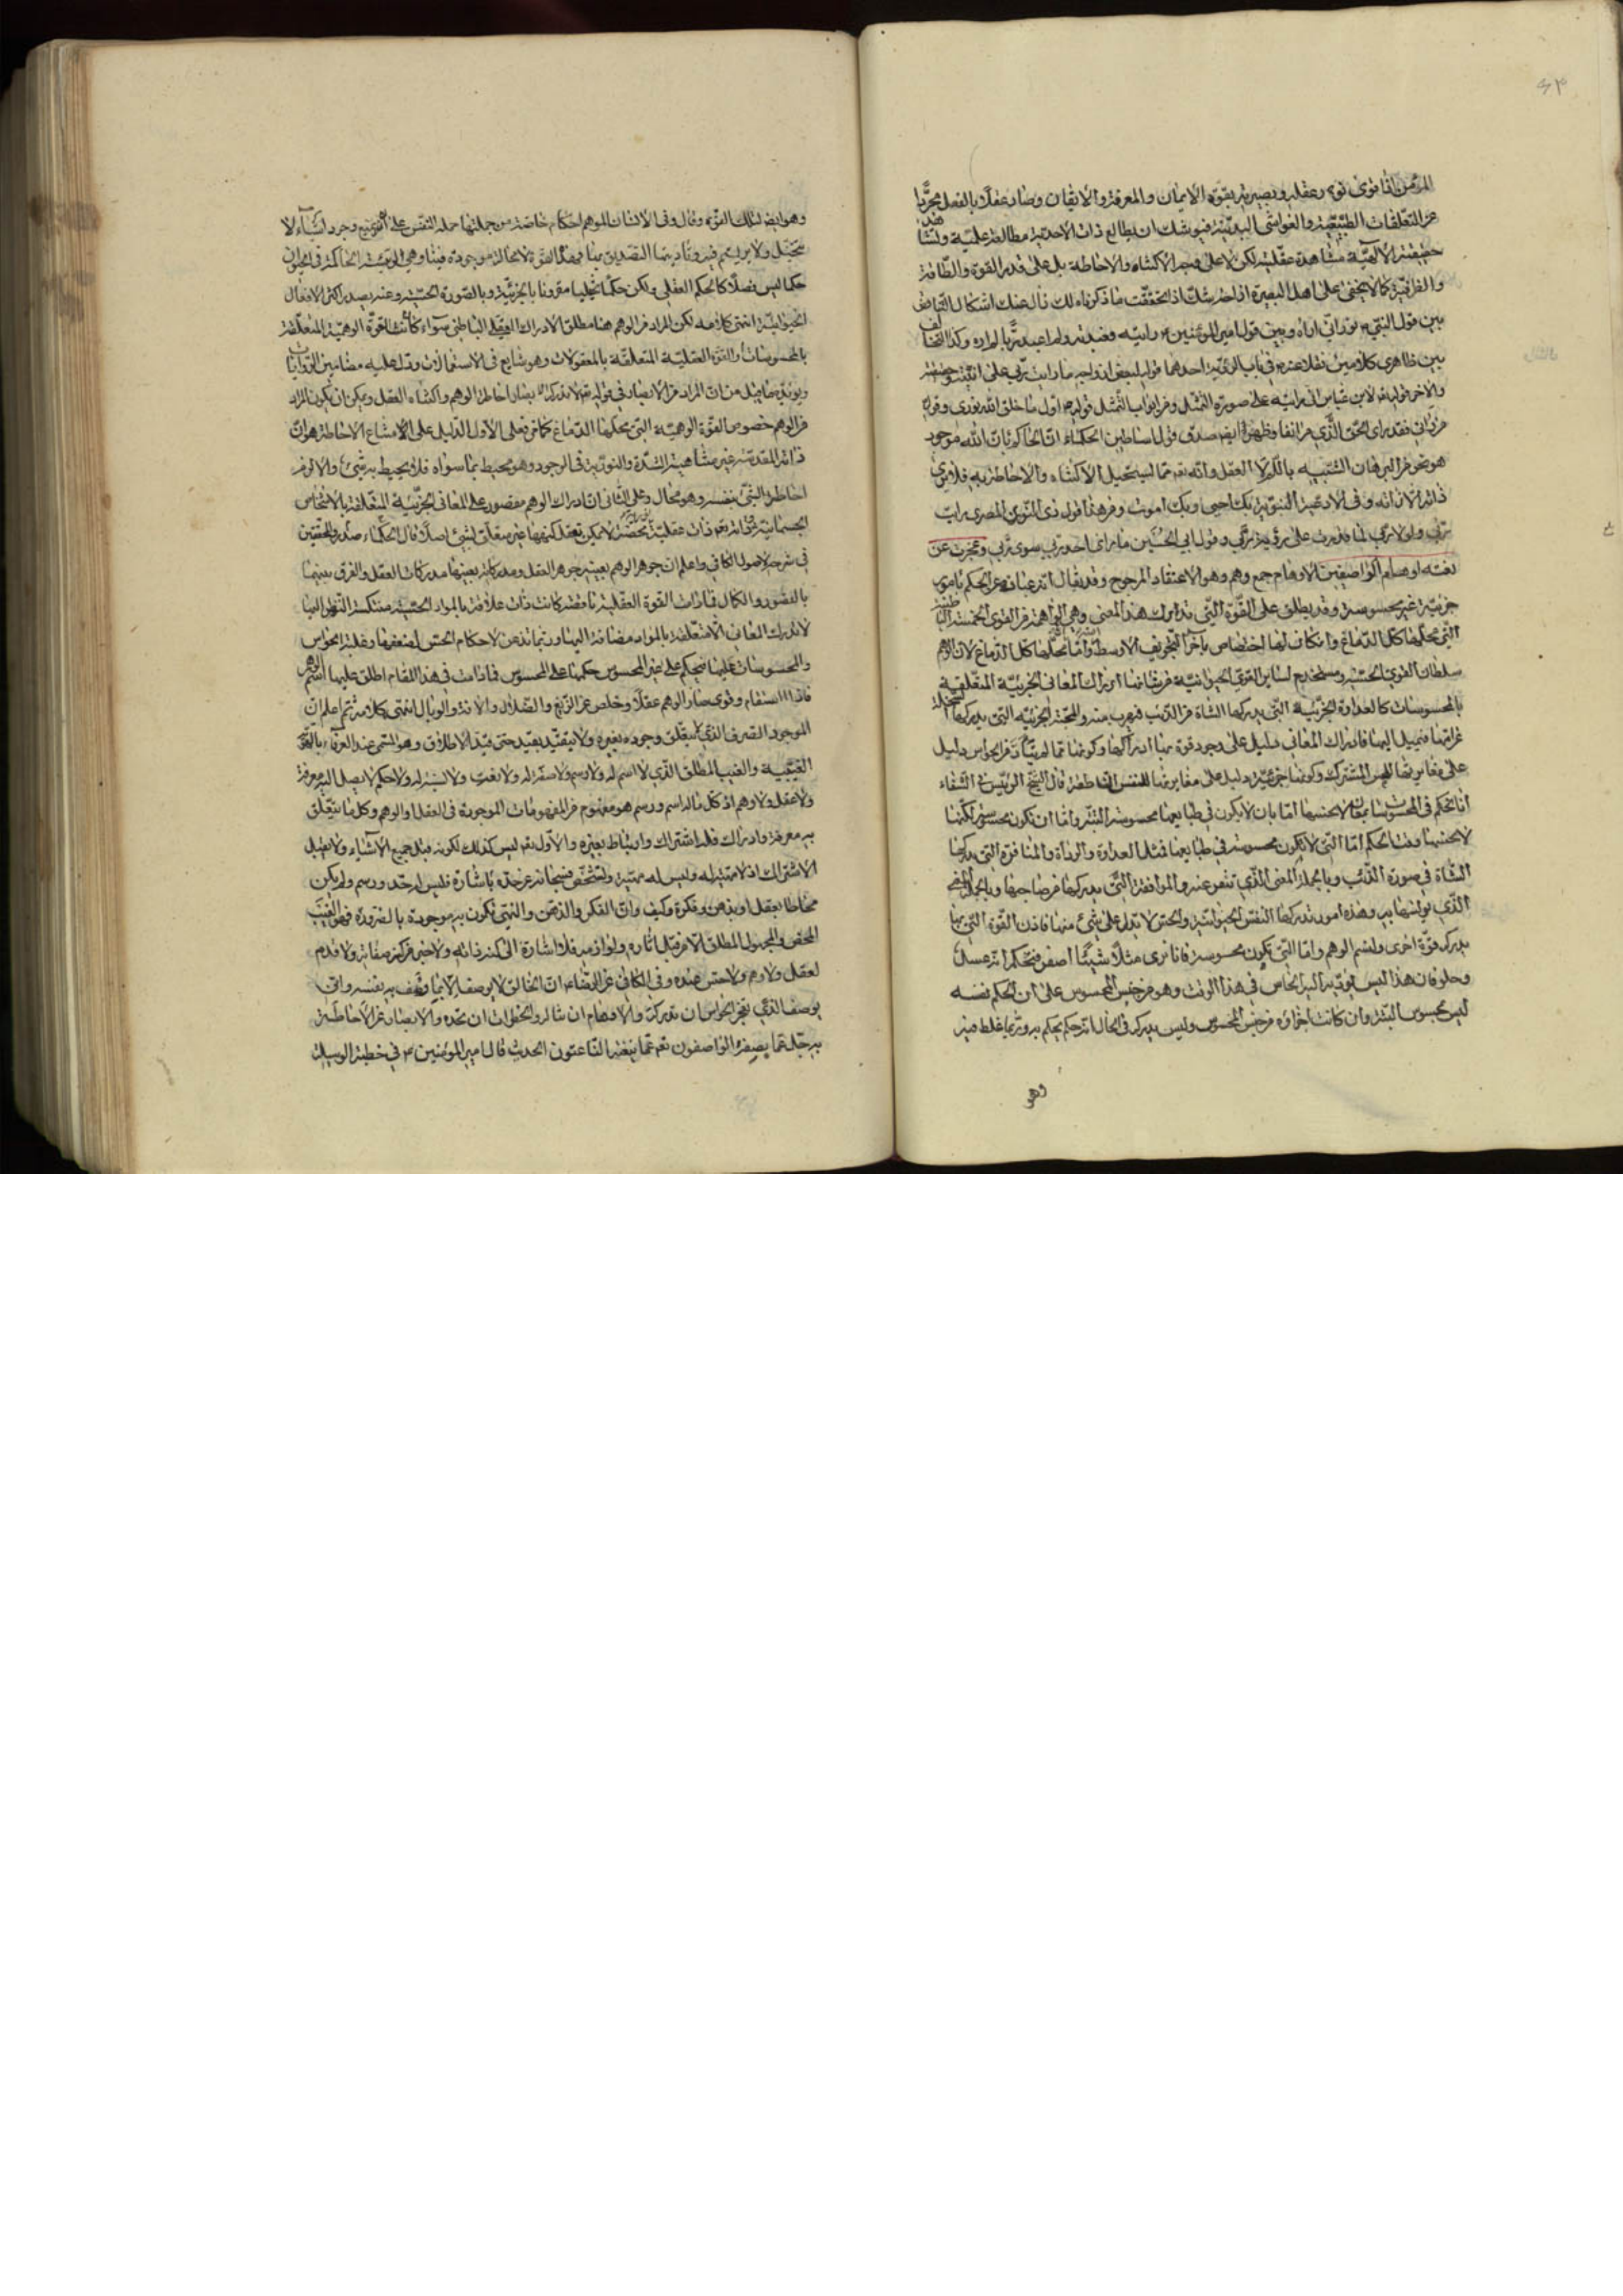 ٤٣
المؤمن اذا قوى نور عقله وبصيرته بقوة الايمان والمعرفة والايقان وصار عقلا بالفعل مجردا
عن التعلقات الطبيعية والغواشي البدنية فيوشك ان يطالع ذات الاحدية مطالعة علمية وتشاهد
حقيقة الالهية مشاهدة عقلية لكن لا على وجه الاكتناه والاحاطة بل على قدر القوة والطاقة
كما لا يخفى على اهل البصيرة اذا تحققت ما ذكرناه لك زال عنك اشكال التناقض
بين قول النبي نور انى اراه وبين قول امير المؤمنين رايته فعبدته ولم اعبد ربا لم اره وكذا التخالف
بين ظاهري كلامين نقلا عنه في باب الرؤية احدهما
والاخر قوله لابن عباس اني رايته على صورة اول ما خلق الله نوري وقوله
من رآني فقد راى الحق صدق قول اساطين الحكماء ان الله موجود
هو نحو من البرهان الشبيه باللم لا العقل وانه تعالى مما يستحيل الاكتناه والاحاطة به فلا يرى
ذاته الا ذاته وفي الادعية النبوية بك احيى وبك اموت ومن هذا قول ذي النون المصري رايت
ربي بربي ولولا ربي لما قدرت على رؤية ربي وقول ابي الحسين ما راى احد ربي سوى ربي وعجزت عن
نعته اوهام الواصفين الاوهام جمع وهم وهو الاعتقاد المرجوح وقد يقال انه عبارة عن الحكم بامور
جزئية غير محسوسة وقد يطلق على القوة التي تدرك هذا المعنى وهي الواهمة من القوى الخمسة الباطنة
التي محلها كل الدماغ وان كان لها اختصاص بآخر التجويف الاوسط وانما محلها كل الدماغ لان الوهم
سلطان القوى الحسية ومستخدم لسائر القوى الحيوانية من شانها ادراك المعاني الجزئية المتعلقة
بالمحسوسات كالعداوة الجزئية التي يدركها الشاة من الذئب فتهرب منه والمحبة الجزئية التي يدركها السخلة
من امها فتميل اليها فادراك المعاني دليل على وجود قوة بها ادراكها وكونها مما لم يتاد من الحواس دليل
على مغايرتها للحس المشترك وكونها جزئية دليل على مغايرتها للنفس الناطقة قال الشيخ الرئيس في الشفاء
انا نحكم في المحسوسات بمعان لا نحسها اما بان لا يكون في طبايعها محسوسة البتة واما ان تكون محسوسة لكنا
لا نحسها وقت الحكم اما التي لا تكون محسوسة في طبايعها فمثل العداوة والرداءة والمنافرة التي يدركها
الشاة في صورة الذئب وبالجملة المعنى الذي تنفر عنه والموافقة التي يدركها من صاحبها وبالجملة المعنى
الذي يونسها به وهذه امور تدركها النفس الحيوانية والحس لا يدل على شيء منها فاذن القوة التي بها
يدرك قوة اخرى ولتسم الوهم واما التي تكون محسوسة فانا نرى مثلا شيئا اصفر فنحكم انه عسل
وحلو فان هذا ليس يؤديه اليه الحاس في هذا الوقت وهو من جنس المحسوس على ان الحكم نفسه
ليس بمحسوس البتة وان كانت اجزاؤه من جنس المحسوس وليس يدركه في الحال انما هو حكم يحكم به وربما غلط فيه
وهو
وهو ايضا لتلك القوة وقال وفي الانسان للوهم احكام خاصة من جملتها حمله النفس على ان تمنع وجود اشياء لا
تتخيل ولا يرتسم فيه وتابيها التصديق بها فهذه القوة لا محالة موجودة فينا وهي الرئيسة الحاكمة في الحيوان
حكما ليس فصلا كالحكم العقلي ولكن حكما تخيليا مقرونا بالجزئية وبالصورة الحسية وعنه يصدر اكثر الافعال
الحيوانية انتهى كلامه لكن المراد من الوهم هنا مطلق الادراك الباطني سواء كانت القوة الوهمية المتعلقة
بالمحسوسات او القوة العقلية المتعلقة بالمعقولات وهو شايع في الاستعمالات ودل عليه مضامين الروايات
ويؤيده ما قيل من ان المراد من الابصار في قوله تعالى لا تدركه الابصار احاطة الوهم واكتناه العقل ويمكن ان يكون المراد
من الوهم خصوص القوة الوهمية التي محلها الدماغ كما مر فعلى الاول الدليل على امتناع الاحاطة هو ان
ذاته المقدسة غير متناهية الشدة والنورية في الوجود وهو محيط بما سواه فلا يحيط به شيء والا لزم
احاطة الشيء بنفسه وهو محال وعلى الثاني ان ادراك الوهم مقصور على المعاني الجزئية المتعلقة بالاشخاص
الجسمانية وانه تعالى ذات عقلية محضة لا يمكن تعقل كنهها غير متعلق بشيء اصلا قال الحكماء صدر المحققين
في شرحه لاصول الكافي واعلم ان جوهر الوهم بعينه جوهر العقل ومدركاته بعينها مدركات العقل والفرق بينهما
بالقصور والكمال فما دامت القوة العقلية ناقصة كانت ذات علاقة بالمواد الحسية منتكسة النظر اليها
لا تدرك المعاني الا متعلقة بالمواد مضافة اليها وربما تذعن لاحكام الحس لضعفها وغلبة الحواس
والمحسوسات عليها فتحكم على غير المحسوس حكمها على المحسوس فما دامت في هذا المقام اطلق عليها اسم الوهم
فاذا استقام وقوى صار الوهم عقلا وخلص عن الزيغ والضلال والآفة والوبال انتهى كلامه ثم اعلم ان
الموجود الصرف الذي لا يتعلق وجوده بغيره ولا يتقيد بقيد حتى قيد الاطلاق وهو المسمى عند العرفاء بالهوية
الغيبية والغيب المطلق الذي لا اسم له ولا رسم ولا صفة له ولا نعت ولا نسبة له ولا حكم لا يصل اليه معرفة
ولا عقل ولا وهم اذ كل ما له اسم ورسم هو مفهوم من المفهومات الموجودة في العقل او الوهم وكل ما يتعلق
به معرفة وادراك فله اشتراك وارتباط بغيره والاول تعالى ليس كذلك لكونه قبل جميع الاشياء ولا يقبل
الاشتراك اذ لا مثيل له وليس له مهية وتشخص فسبحانه عن حده باشارة فليس له حد ورسم ولم يكن
مخاطا بعقل او بذهن وفكرة وكيف وان الفكر والذهن والنية تكون به موجودة بالضرورة فهو الغيب
المحض والمجهول المطلق الا من قبل آثاره ولوازمه فلا اشارة الى كنه ذاته ولا خبر من كنه صفاته ولا قدم
لعقل ولا وهم ولا حس عنده وفي الكافي عن الرضا ان الخالق لا يوصف الا بما وصف به نفسه وانى
يوصف الذي يعجز الحواس ان تدركه والاوهام ان تناله والخطرات ان تحده والابصار عن الاحاطة
به جل عما يصفه الواصفون تعالى عما ينعته الناعتون الحديث قال امير المؤمنين في خطبة الوسيلة